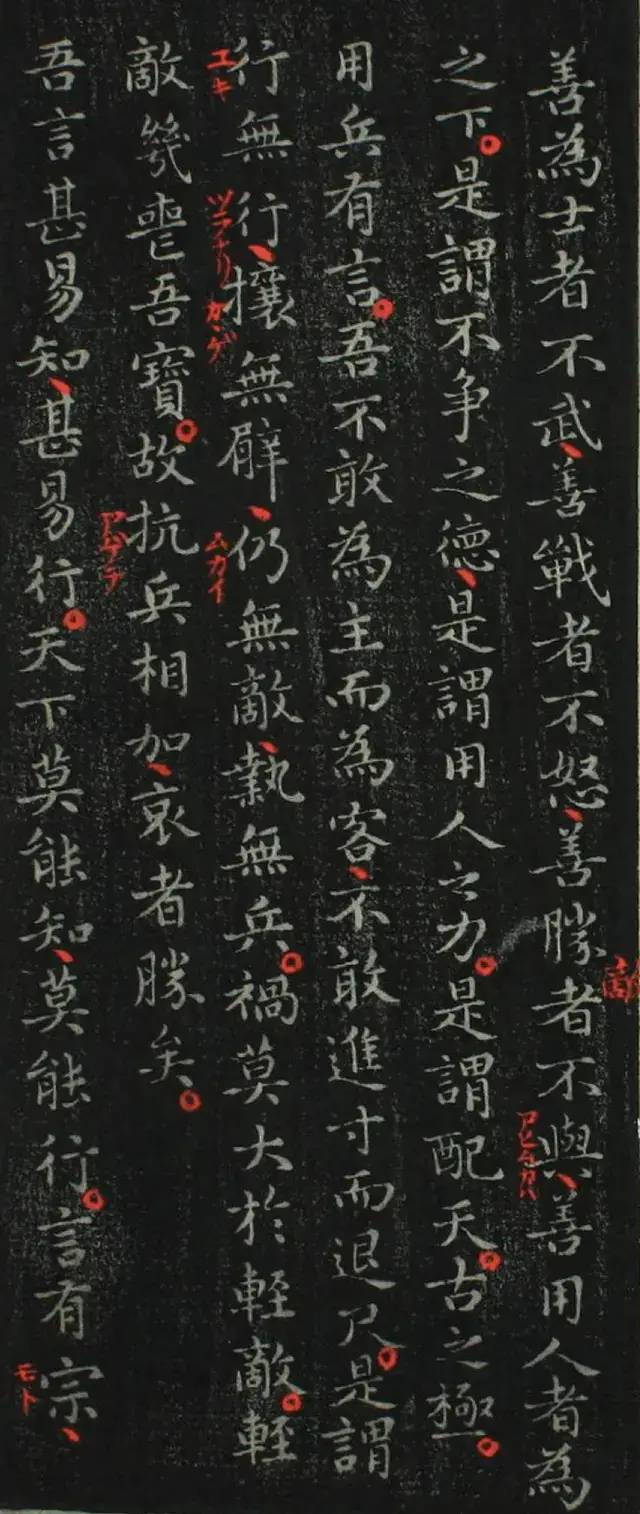 善為士者不武、善戰者不怒、善勝者不與、善用人者為
敵
アヒタカハ
之下。是謂不争之德、是謂用人之力。是謂配天。古之極。
用兵有言。吾不敢為主而為客、不敢進寸而退尺。是謂
行無行、攘無臂、仍無敵、執無兵。禍莫大於輕敵。輕
ユキ
ツラナリ
カヽゲ
ムカイ
敵幾喪吾寶。故抗兵相加、哀者勝矣。
アゲテ
吾言甚易知、甚易行。天下莫能知、莫能行。言有宗、
モト